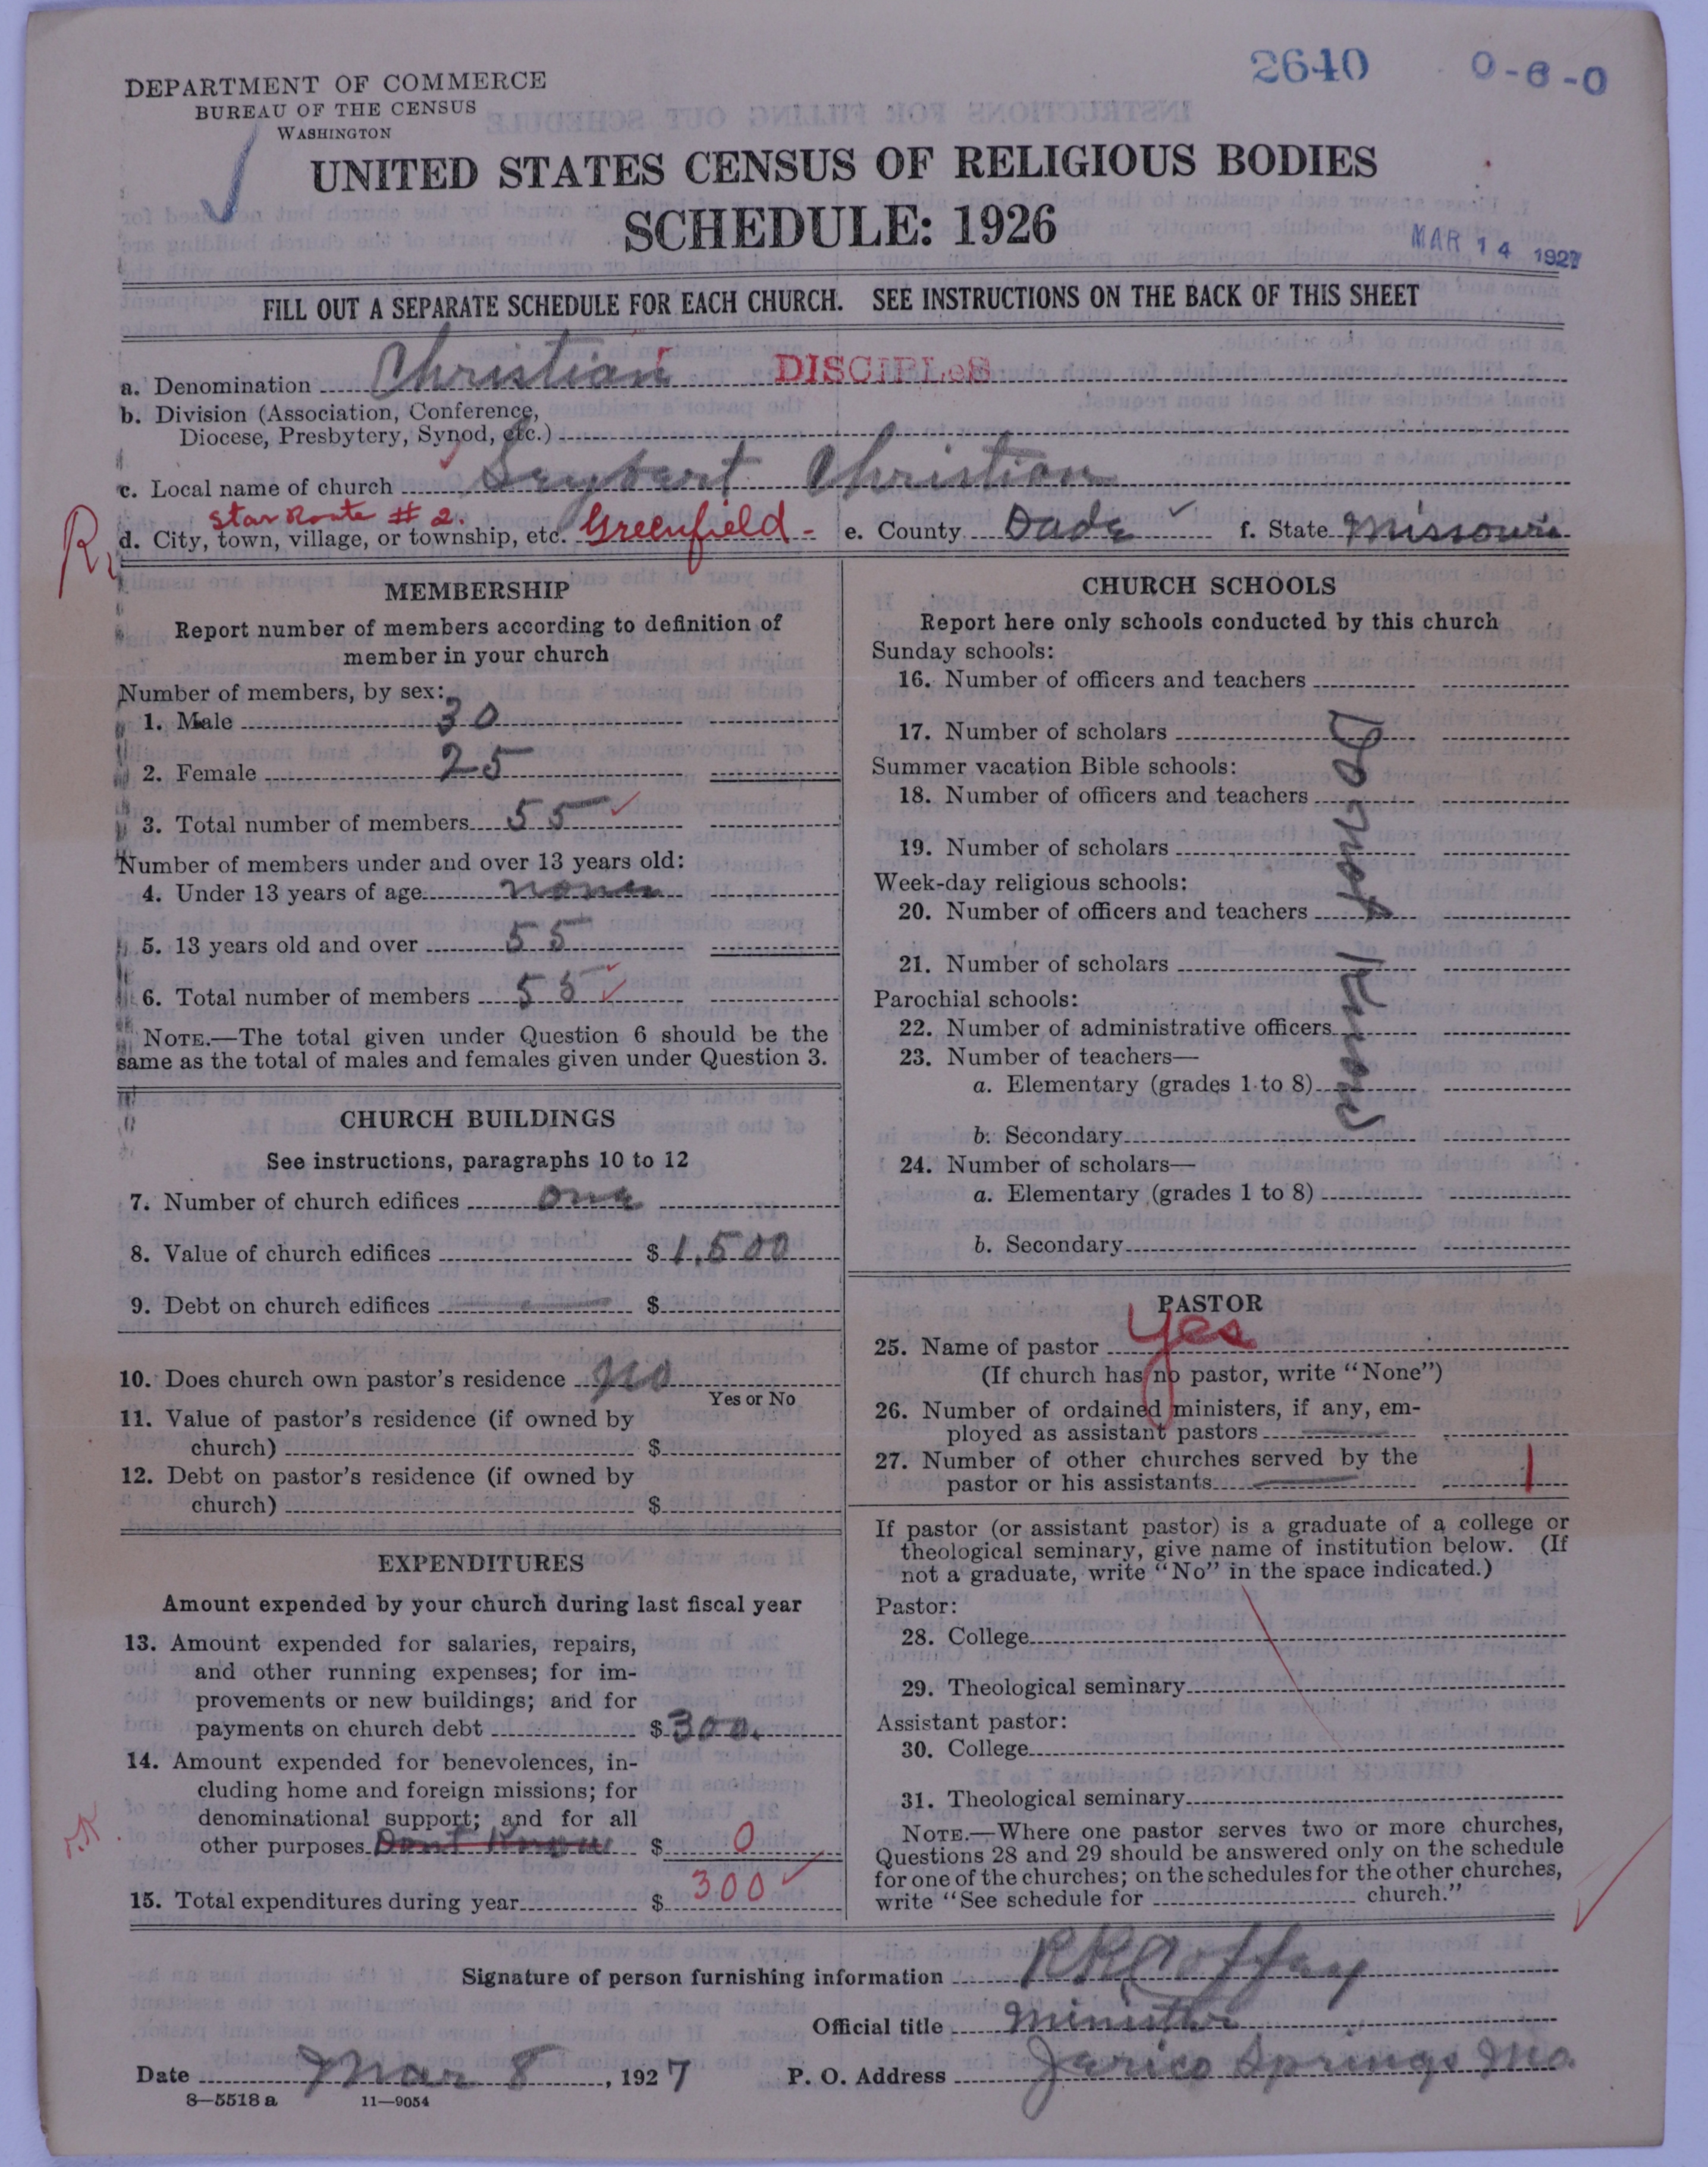 2640 0-6-0
DEPARTMENT OF COMMERCE
BUREAU OF THE CENSUS
WASHINGTON
UNITED STATES CENSUS OF RELIGIOUS BODIES
SCHEDULE: 1926
MAR 14 1927
FILL OUT A SEPARATE SCHEDULE FOR EACH CHURCH. SEE INSTRUCTIONS ON THE BACK OF THIS SHEET
a. Denomination Christian DISCIPLeS
b. Division (Association, Conference,
Diocese, Presbytery, Synod, etc.)
c. Local name of church Seybert Christian
Star Route # 2.
d. City, town, village, or township, etc. Greenfield - e. County Dade f. State Missouri
MEMBERSHIP
Report number of members according to definition of
member in your church
Number of members, by sex:
1. Male 30
2. Female 25
3. Total number of members 55
Number of members under and over 13 years old:
4. Under 13 years of age none
5. 13 years old and over 55
6. Total number of members 55
NOTE.—The total given under Question 6 should be the
same as the total of males and females given under Question 3.
CHURCH BUILDINGS
See instructions, paragraphs 10 to 12
7. Number of church edifices one
8. Value of church edifices $1,500
9. Debt on church edifices $
10. Does church own pastor's residence No
Yes or No
11. Value of pastor's residence (if owned by
church) $
12. Debt on pastor's residence (if owned by
church) $
EXPENDITURES
Amount expended by your church during last fiscal year
13. Amount expended for salaries, repairs,
and other running expenses; for im-
provements or new buildings; and for
payments on church debt $300.
14. Amount expended for benevolences, in-
cluding home and foreign missions; for
denominational support; and for all
other purposes Dont Know $ 0
15. Total expenditures during year $ 300
CHURCH SCHOOLS
Report here only schools conducted by this church
Sunday schools:
16. Number of officers and teachers
17. Number of scholars
Summer vacation Bible schools:
18. Number of officers and teachers
19. Number of scholars
Week-day religious schools:
20. Number of officers and teachers
21. Number of scholars
Parochial schools:
22. Number of administrative officers
23. Number of teachers—
a. Elementary (grades 1 to 8)
b. Secondary
24. Number of scholars—
a. Elementary (grades 1 to 8)
b. Secondary
PASTOR
25. Name of pastor yes
(If church has no pastor, write "None")
26. Number of ordained ministers, if any, em-
ployed as assistant pastors
27. Number of other churches served by the
pastor or his assistants 1
If pastor (or assistant pastor) is a graduate of a college or
theological seminary, give name of institution below. (If
not a graduate, write "No" in the space indicated.)
Pastor:
28. College
29. Theological seminary
Assistant pastor:
30. College
31. Theological seminary
NOTE.—Where one pastor serves two or more churches,
Questions 28 and 29 should be answered only on the schedule
for one of the churches; on the schedules for the other churches,
write "See schedule for church."
Signature of person furnishing information
Official title Minister
Date Mar 8, 1927 P. O. Address Jerico Springs Mo.
8—5518 a 11—9054